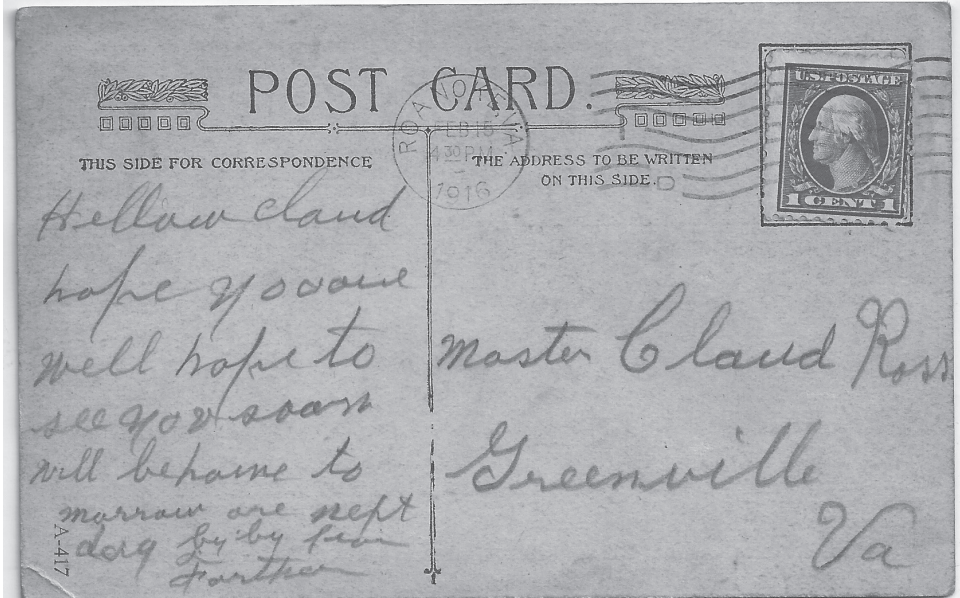 POST CARD.
ROANOKE, VA.
FEB 16
4 30 P.M.
1916
U.S. POSTAGE
1 CENT 1
THIS SIDE FOR CORRESPONDENCE
THE ADDRESS TO BE WRITTEN
ON THIS SIDE.
Hellow Claud
hope you are
well hope to
see you soan
will be home to
marrow are next
day by by from
Farther
Master Claud Ross
Greenville
Va
A-417